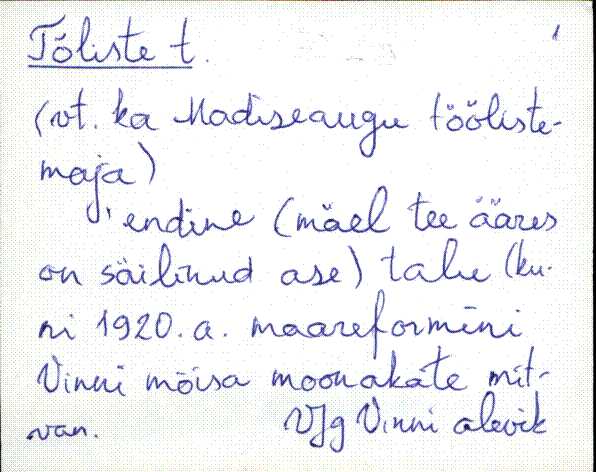 Tööliste t.
(vt. ka Madiseaugu tööliste-
maja)
endine (mäel tee ääres
on säilinud ase) talu (ku-
ni 1920. a. maareformini
Vinni mõisa moonakate mit-
VJg Vinni alevik